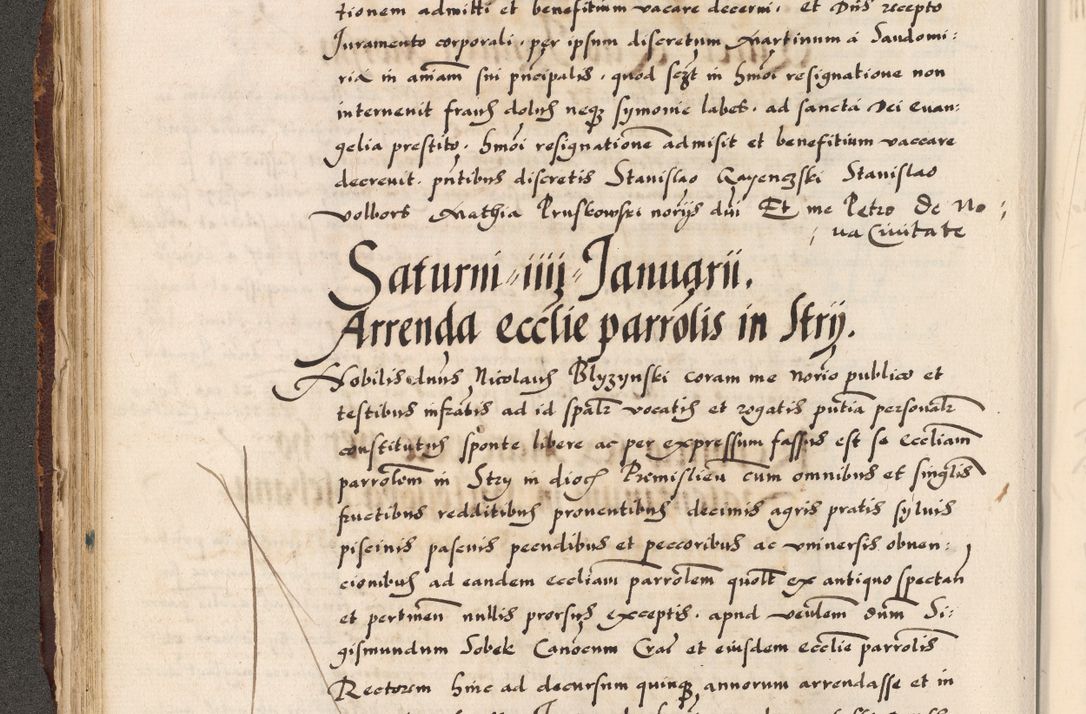 tionem admitti et benefitium vacare decerni, et Dns recepto
Juramento corporali, per ipsum discretum Martinum a Sandomi:
ria in aniam sui pncipalis, quod sczt in hmoi resignatione non
intervenit fraus dolus neqz symonie labes, ad sancta Dei evan:
gelia prestito, hmoi resignationem admisit et benefitium vaccare
decrevit, pntibus discretis Stanislao Gayenczski Stanislao
Volbors Mathia Pruskowski noriis dni Et me Petro De No:
va Civitate
Saturni iiii Januarii.
Arrenda ecclie parrolis in Stry.
Nobilis dnus Nicolaus Blyzynski coram me norio publico et
testibus infratis ad id spalr vocatis et rogatis pntia personalr
constitutus sponte libere ac per expressum fassus est se eccliam
parrolem in Stry in dioc Premislien cum omnibus et singlis
fructibus redditibus proventibus decimis agris pratis sylvis
piscinis pascuis pecudibus et peccoribus ac universis obven:
cionibus ad eandem eccliam parrolem quolt ex antiquo spectan
et pertinen nullis prorsus exceptis, apud venlem dnm Si:
gismundum Sobek Canocum Crac et eiusdem ecclie parrolis
Rectorem hinc ad decursum quinqz annorum arrendasse et in